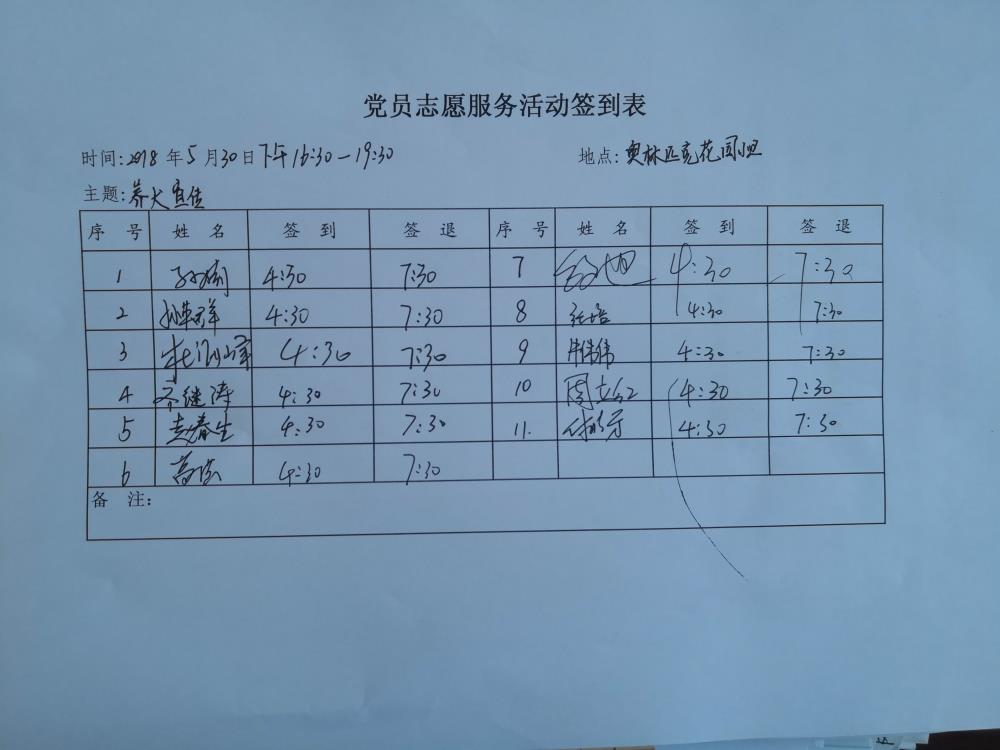 党员志愿服务活动签到表
时间:2018年5月30日下午16:30—19:30 地点:奥林匹克花园小区
主题:养犬宣传
序 号 姓 名 签 到 签 退 序 号 姓 名 签 到 签 退
1 4:30 7:30 7 4:30 7:30
2 4:30 7:30 8 4:30 7:30
3 4:30 7:30 9 4:30 7:30
4 齐继涛 4:30 7:30 10 4:30 7:30
5 赵春生 4:30 7:30 11. 4:30 7:30
6 4:30 7:30
备 注: